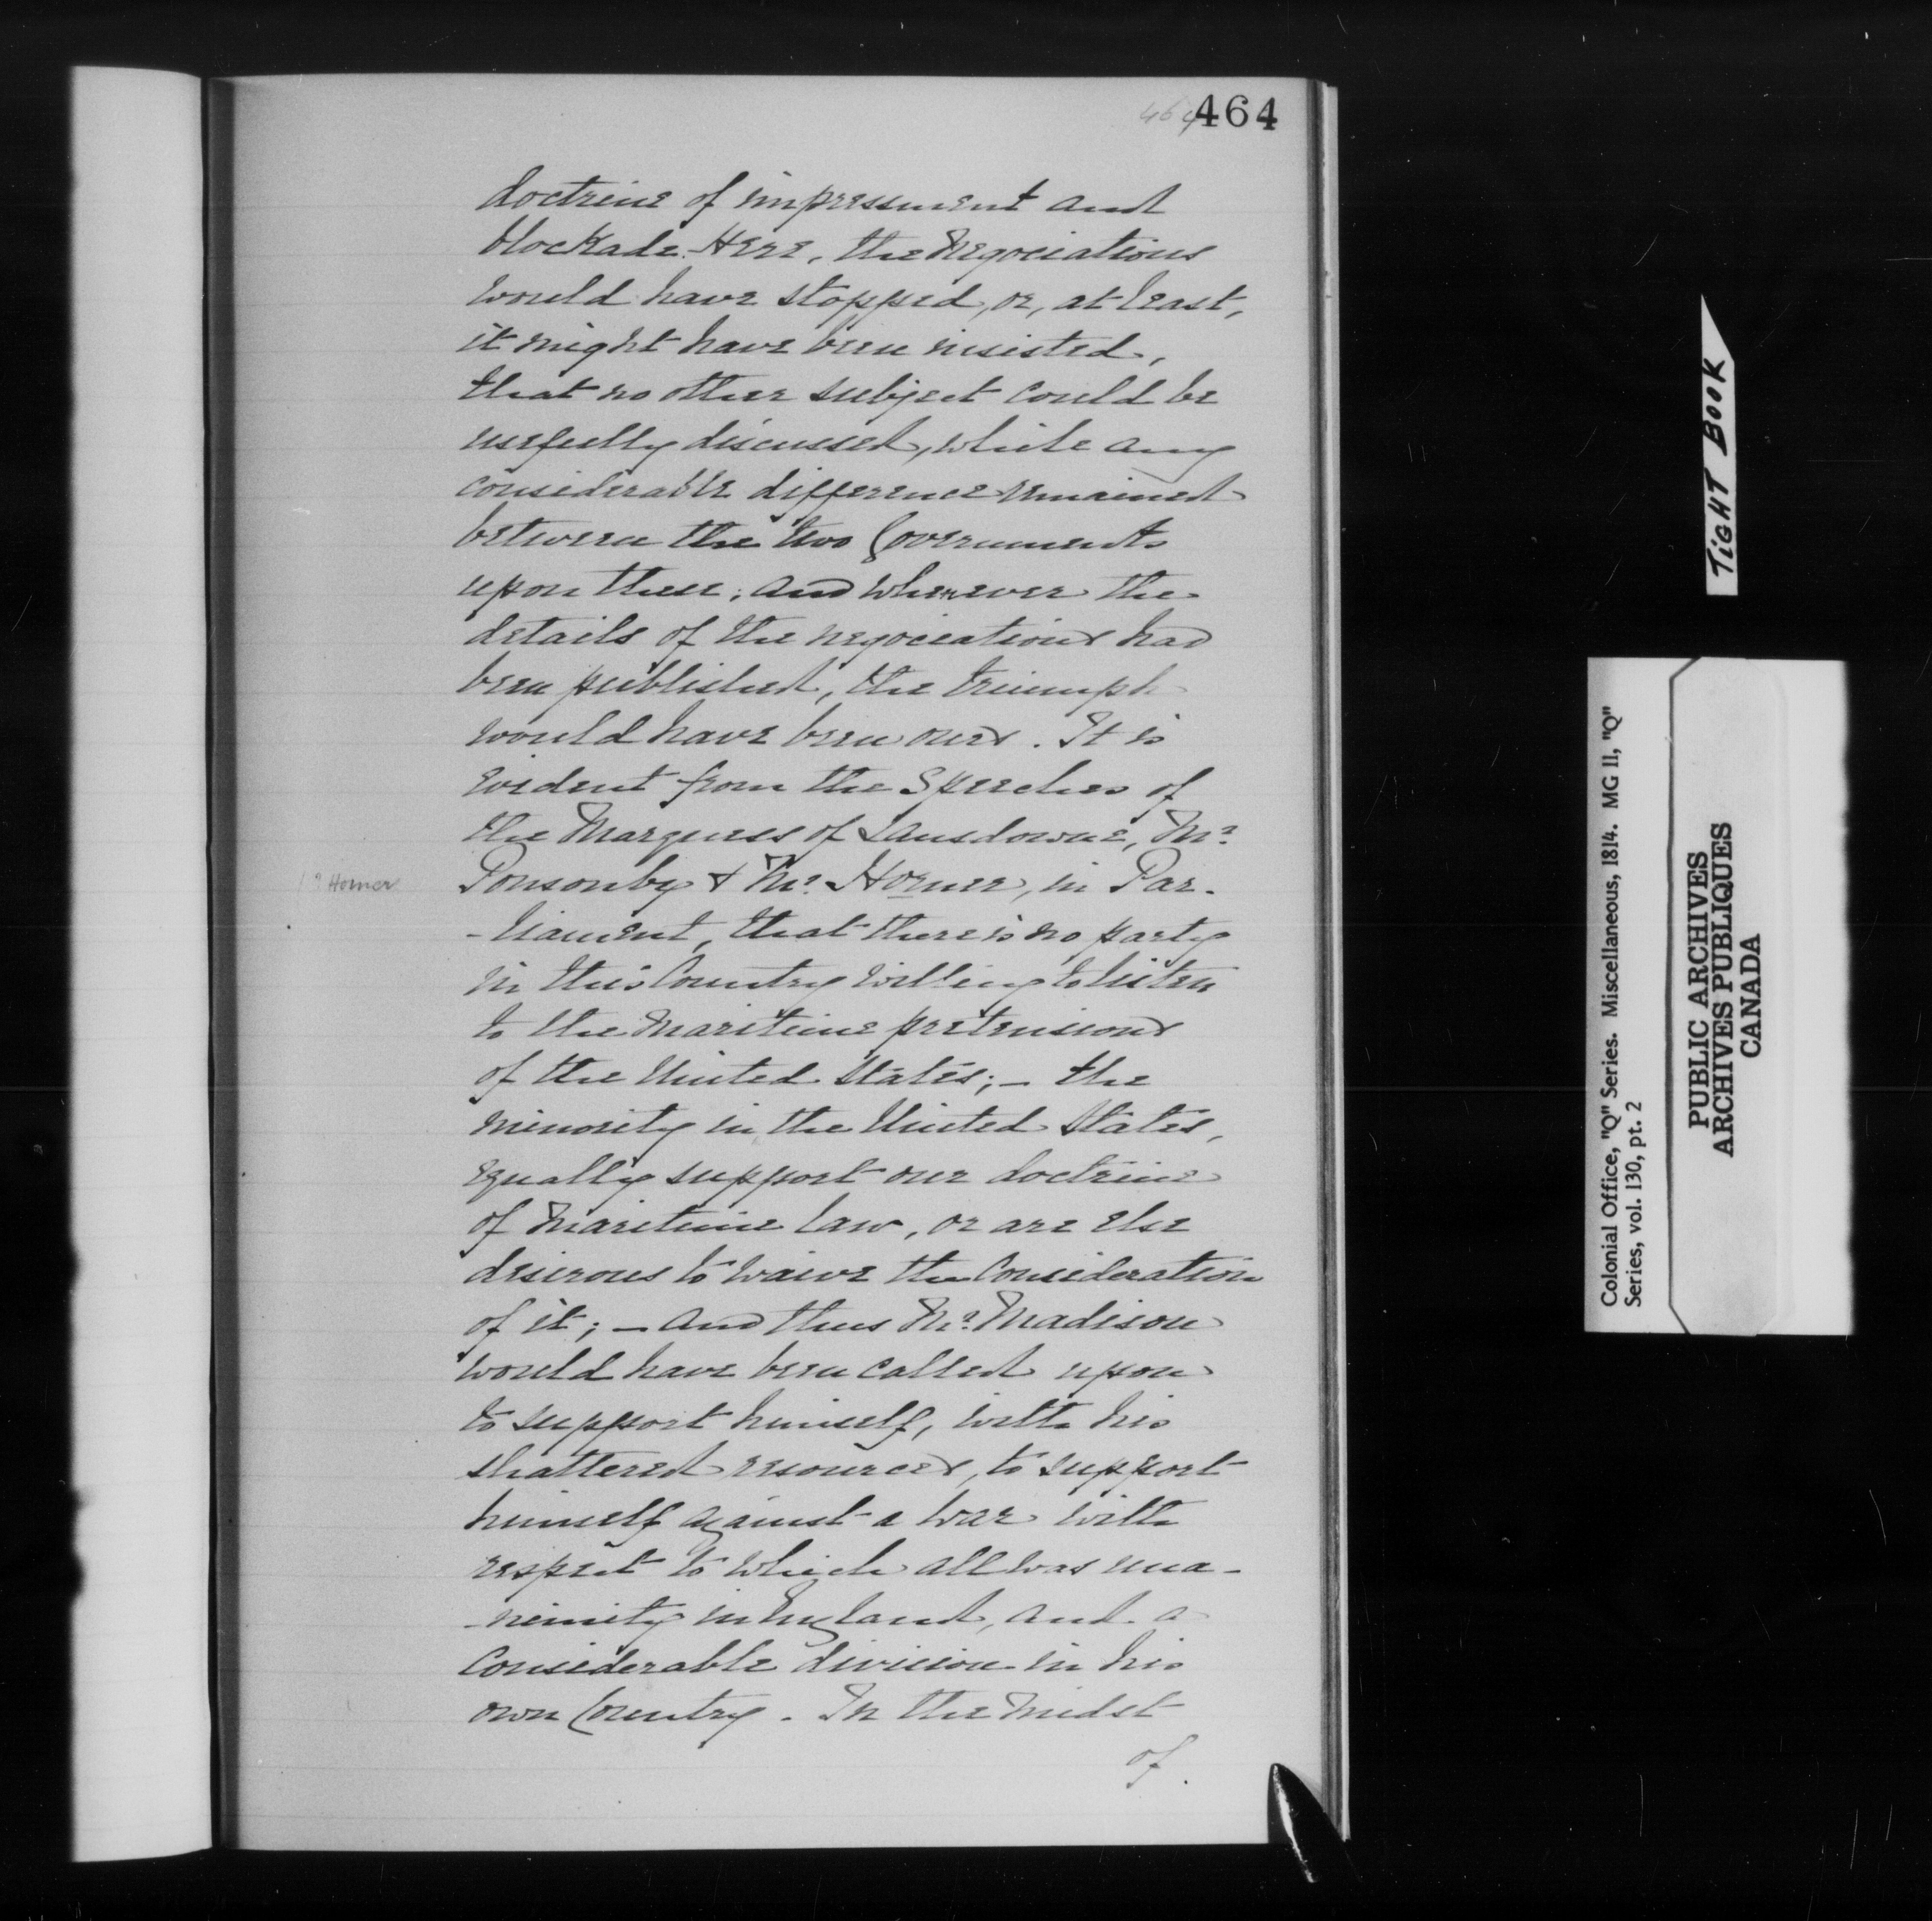 464 464
doctrine of impressment and
blockade. Here, the Negociations
would have stopped, or, at least,
it might have been insisted,
that no other subject could be
usefully discussed, while any
considerable difference remained
between the two Governments
upon these; and whenever the
details of the negociations had
been published, the triumph
would have been ours. It is
evident from the Speeches of
the Marquess of Lansdowne, Mr.
Ponsonby & Mr. Horner, in Par-
Horner
-liament, that there is no party
in this Country willing to listen
to the Maritime pretensions
of the United States; - the
minority in the United States,
equally support our doctrine
of Maritime law, or are else
desirous to waive the Consideration
of it; - and thus Mr. Madison
would have been called upon
to support himself, with his
shattered resources, to support
himself against a war with
respect to which all was una-
-nimity in England, and a
Considerable division in his
own Country. In the midst
of.
TIGHT BOOK
Colonial Office, "Q" Series. Miscellaneous, 1814. MG 11, "Q"
Series, vol. 130, pt. 2
PUBLIC ARCHIVES
ARCHIVES PUBLIQUES
CANADA